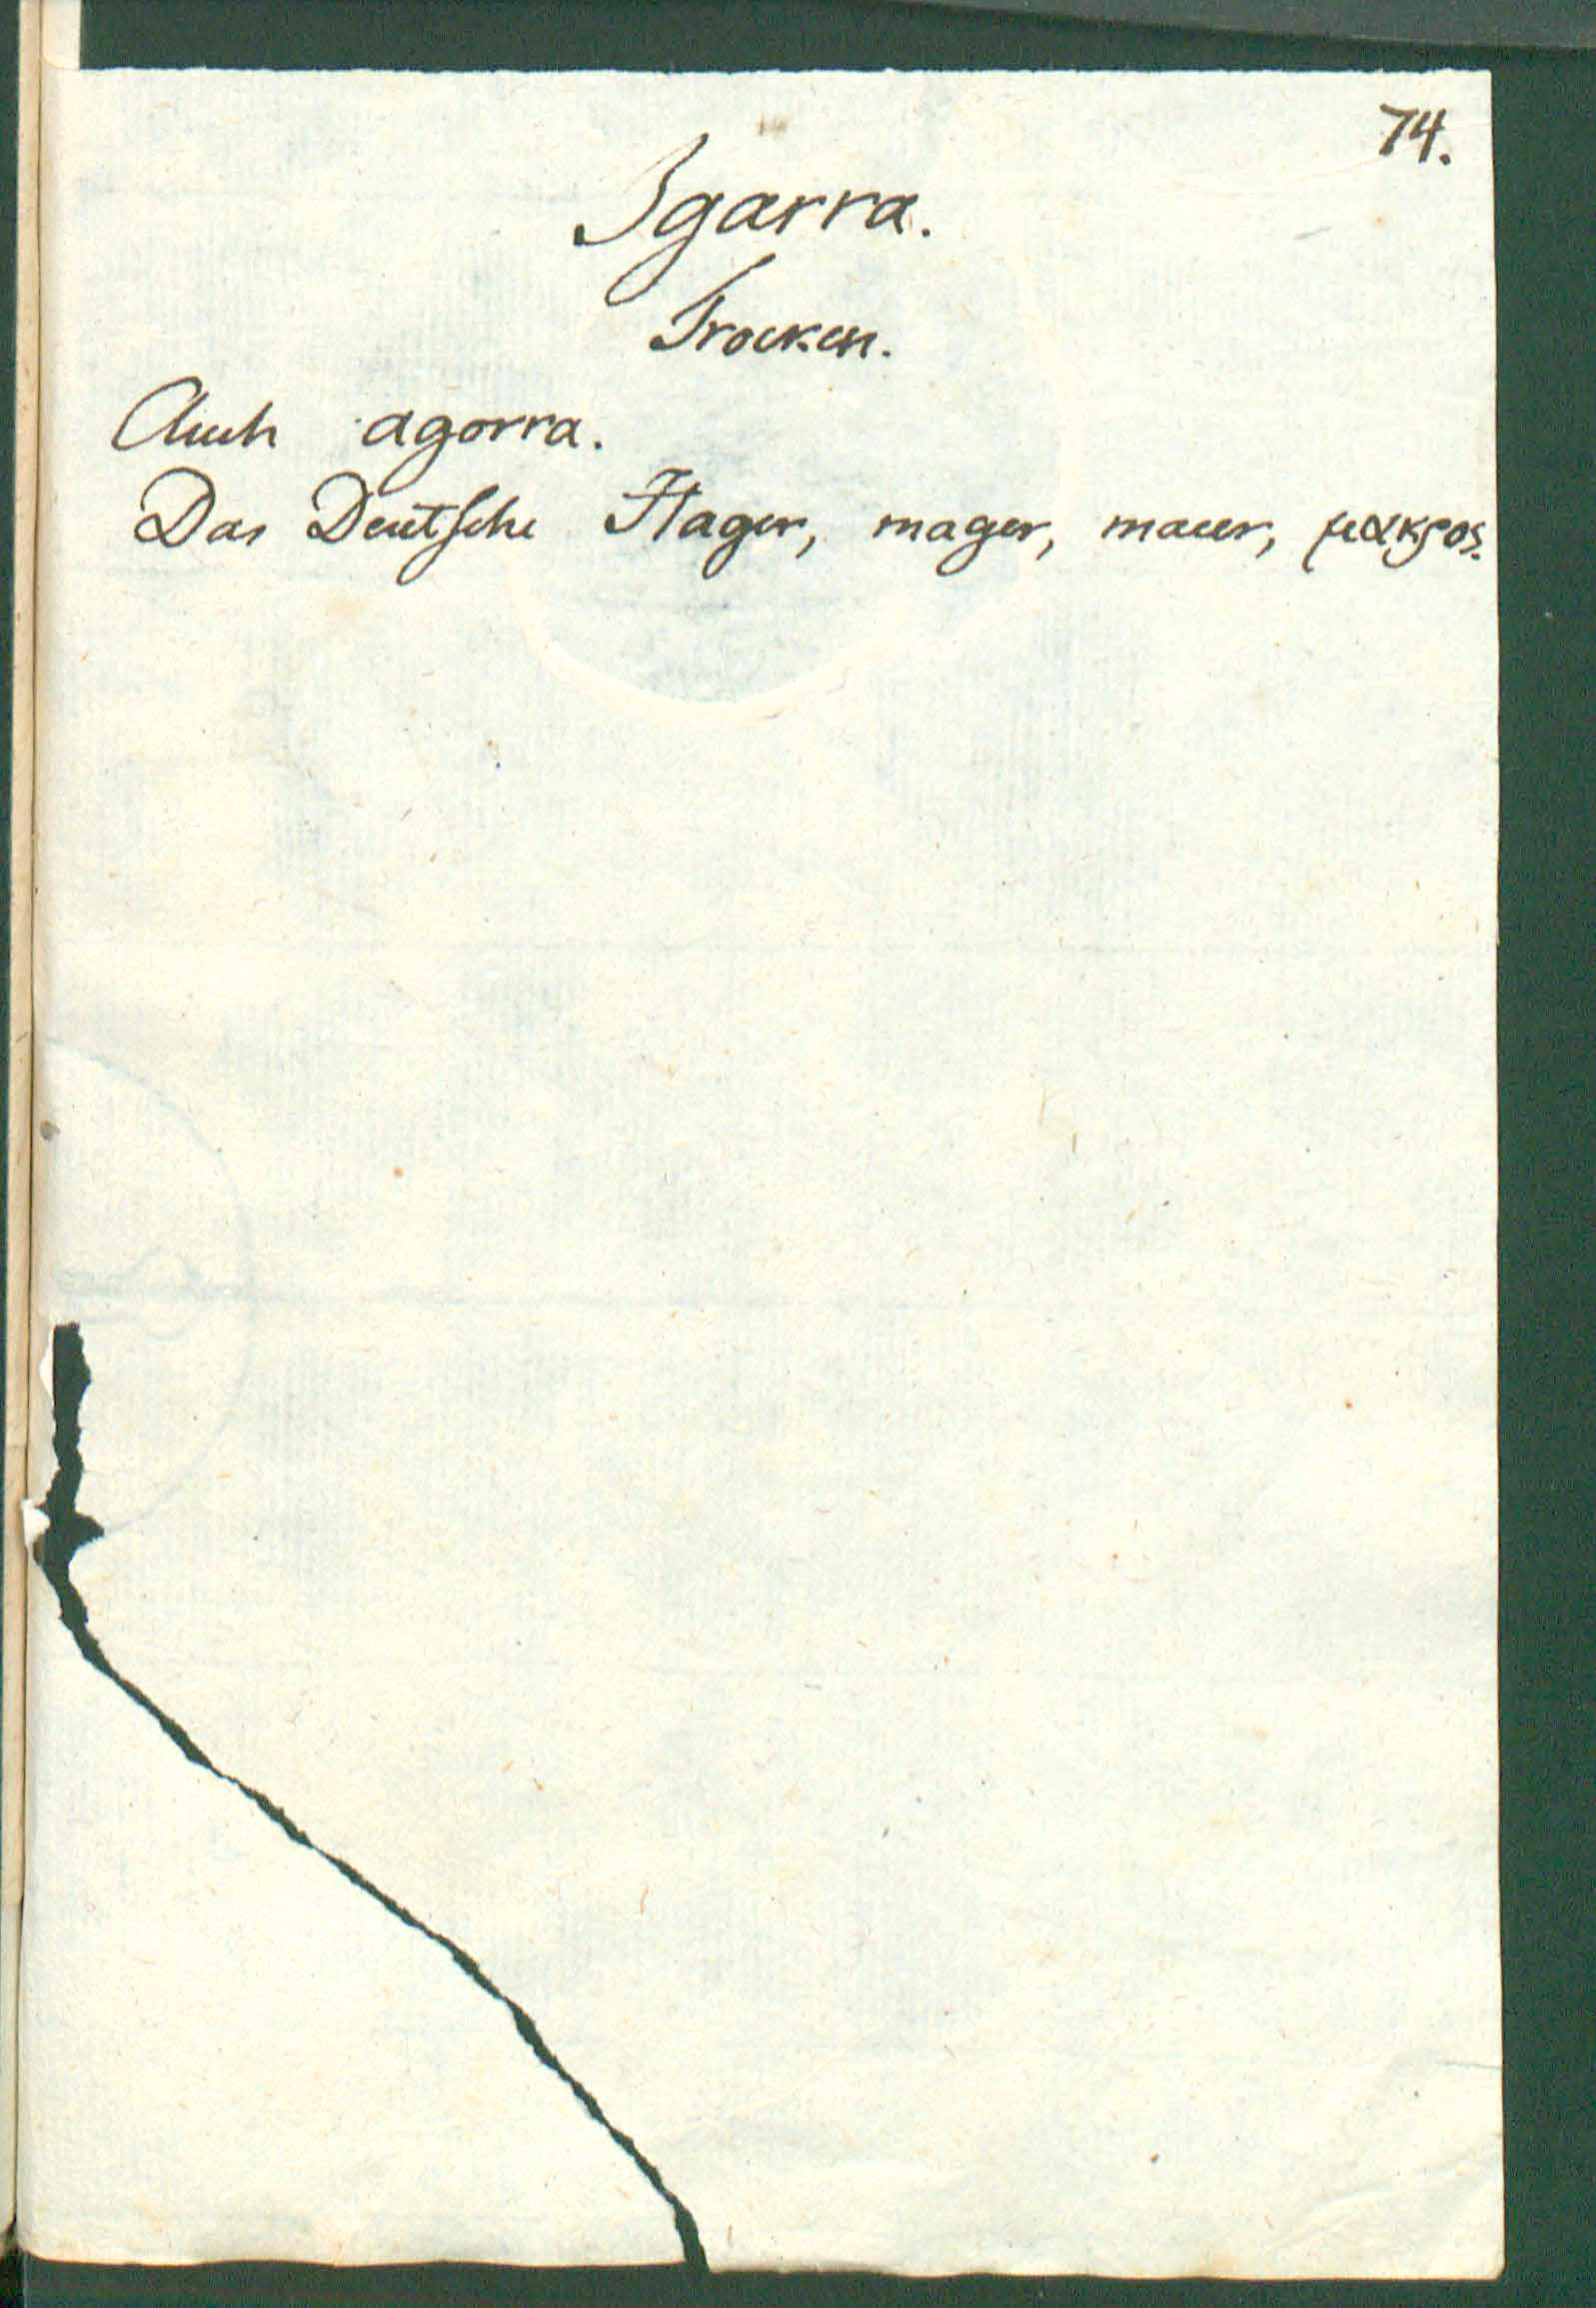 74.
Igarra.
Trocken.
Auch agorra.
Das Deutsche Hager, mager, macer, μακρος.